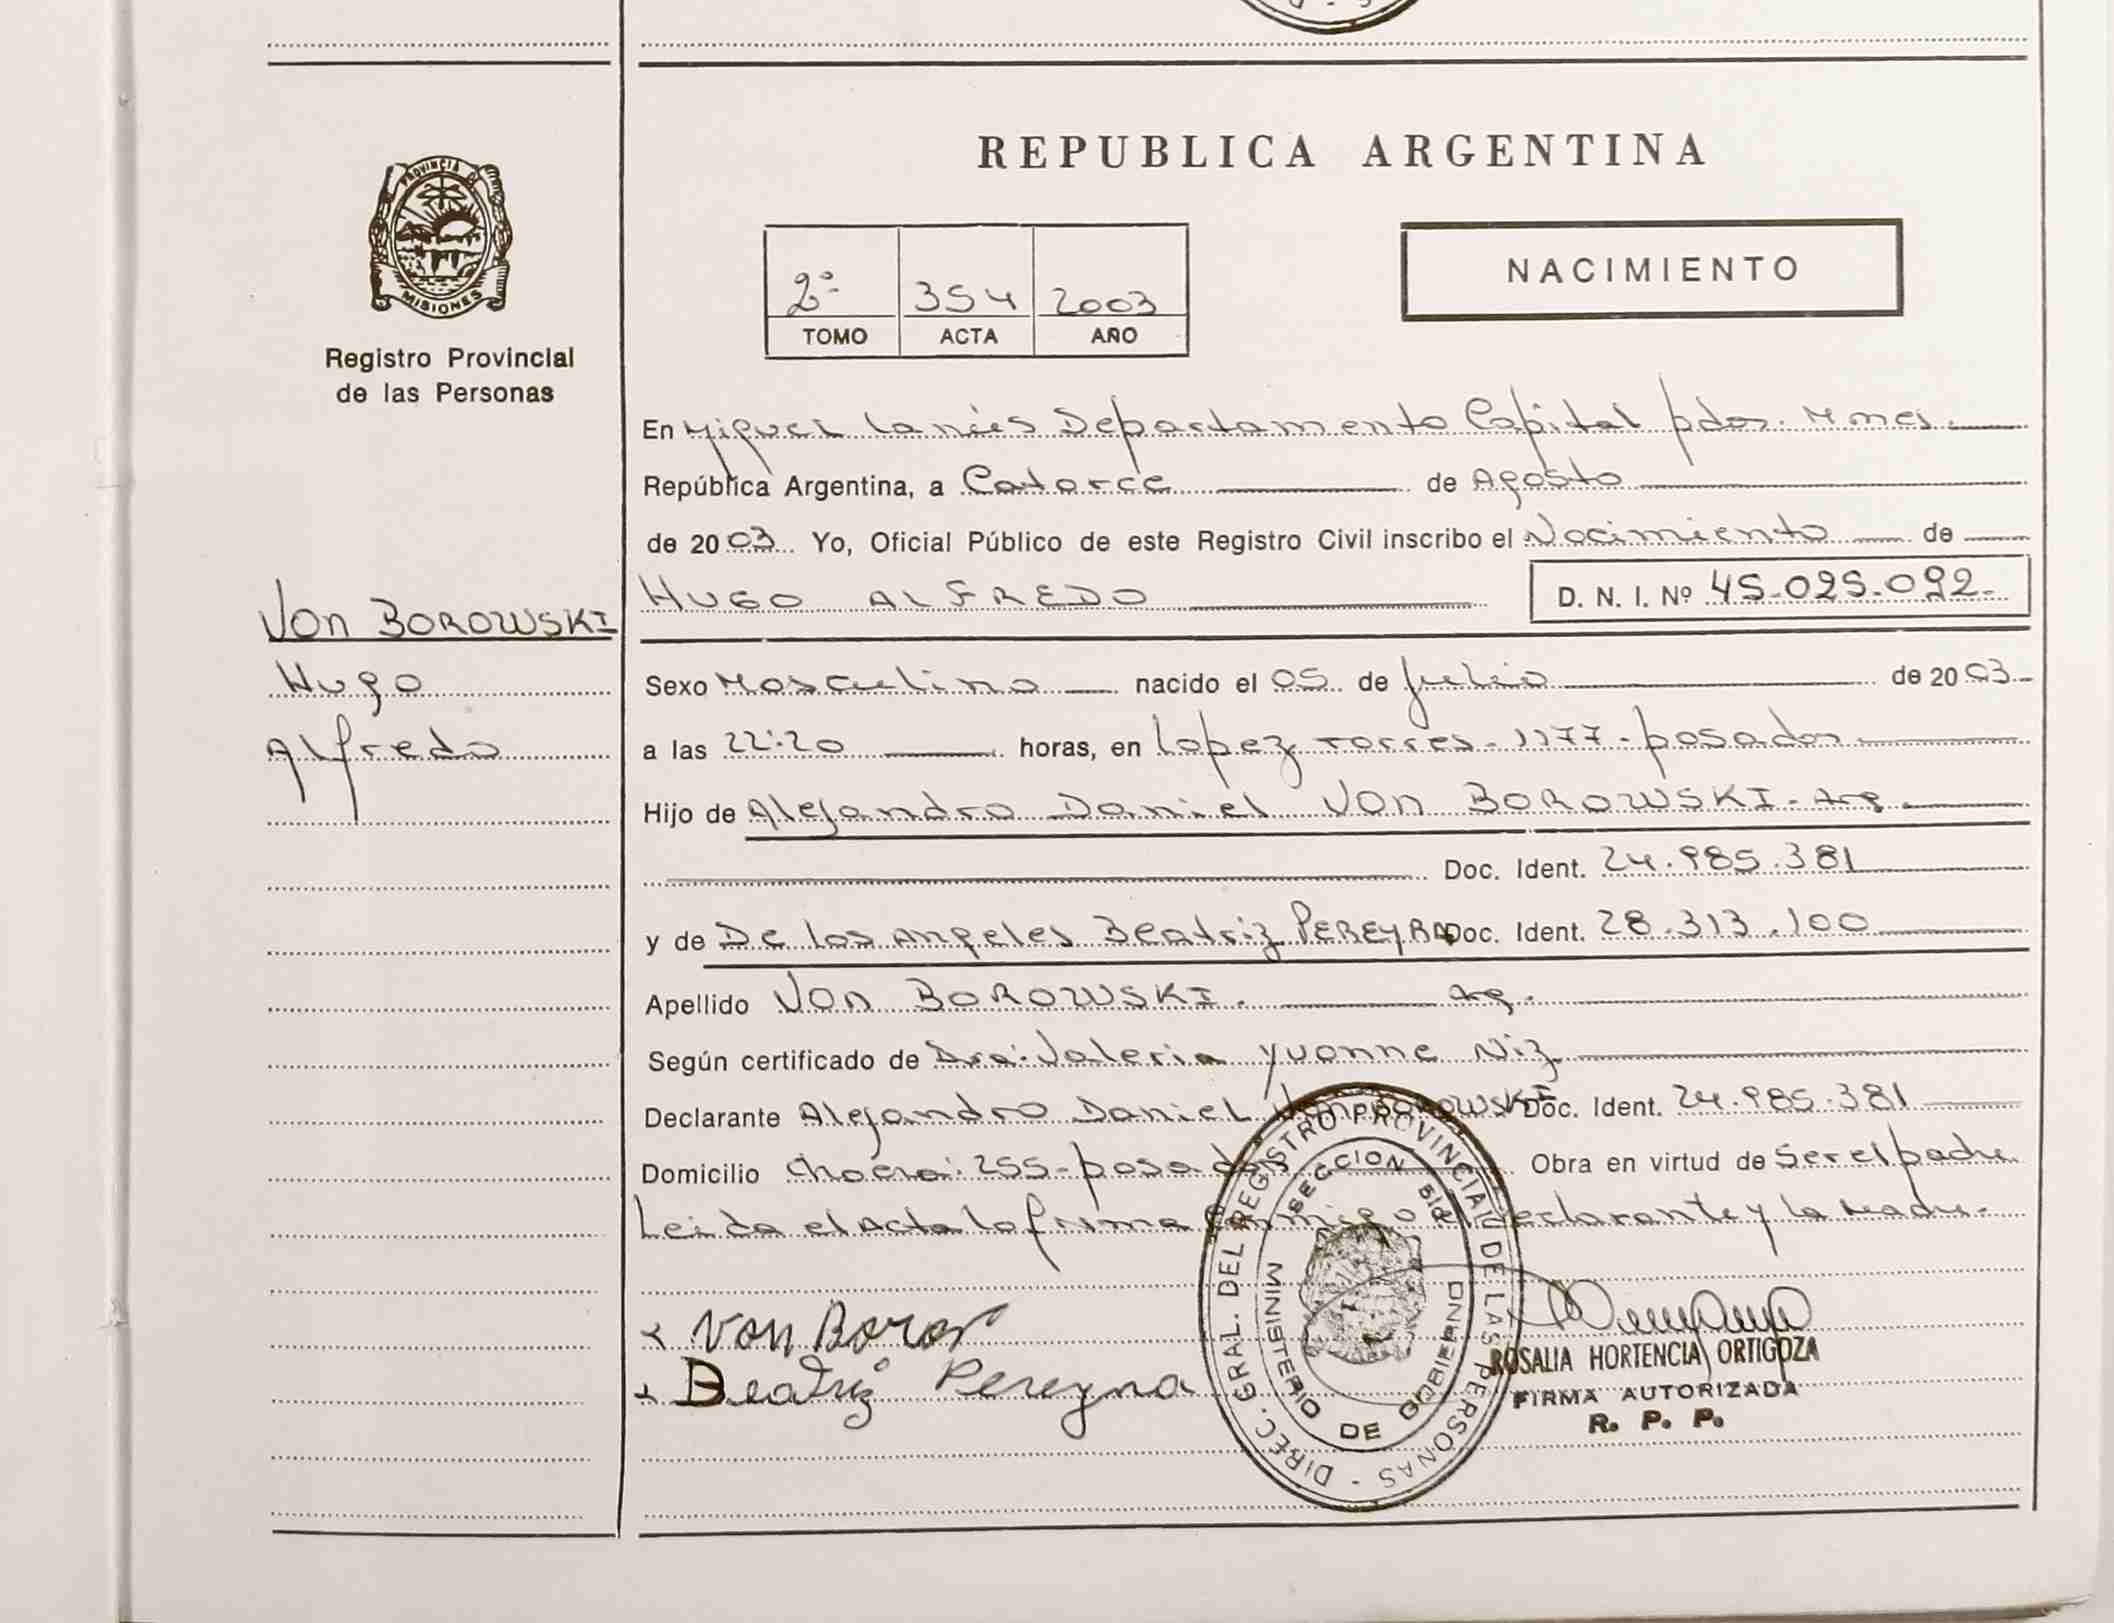 REPUBLICA ARGENTINA
PROVINCIA DE
MISIONES
Registro Provincial
de las Personas
2º 354 2003
TOMO ACTA AÑO
NACIMIENTO
En Miguel Lanús Departamento Capital pdas. Mnes.
República Argentina, a Catorce de Agosto
de 2003 Yo, Oficial Público de este Registro Civil inscribo el Nacimiento de
HUGO ALFREDO D. N. I. Nº 45.025.092.-
Von BOROWSKI
Hugo
Alfredo
Sexo Masculino nacido el 05 de Julio de 2003
a las 22:20 horas, en Lopez Torres-1177-posadas
Hijo de Alejandro Daniel Von BOROWSKI. Arg.
Doc. Ident. 24.985.381
y de De los Angeles Beatriz PEREYRA Doc. Ident. 28.313.100
Apellido Von BOROWSKI. Arg.
Según certificado de Dra. Valeria Yvonne Niz
Declarante Alejandro Daniel Von BOROWSKI Doc. Ident. 24.985.381
Domicilio 255-posadas Obra en virtud de Ser el padre
Leida el Acta la firma conmigo el Declarante y la Madre.
Von Borow
Beatriz Pereyra
DIREC. GRAL. DEL REGISTRO PROVINCIAL DE LAS PERSONAS
MINISTERIO DE GOBIERNO
SECCION
ROSALIA HORTENCIA ORTIGOZA
FIRMA AUTORIZADA
R. P. P.